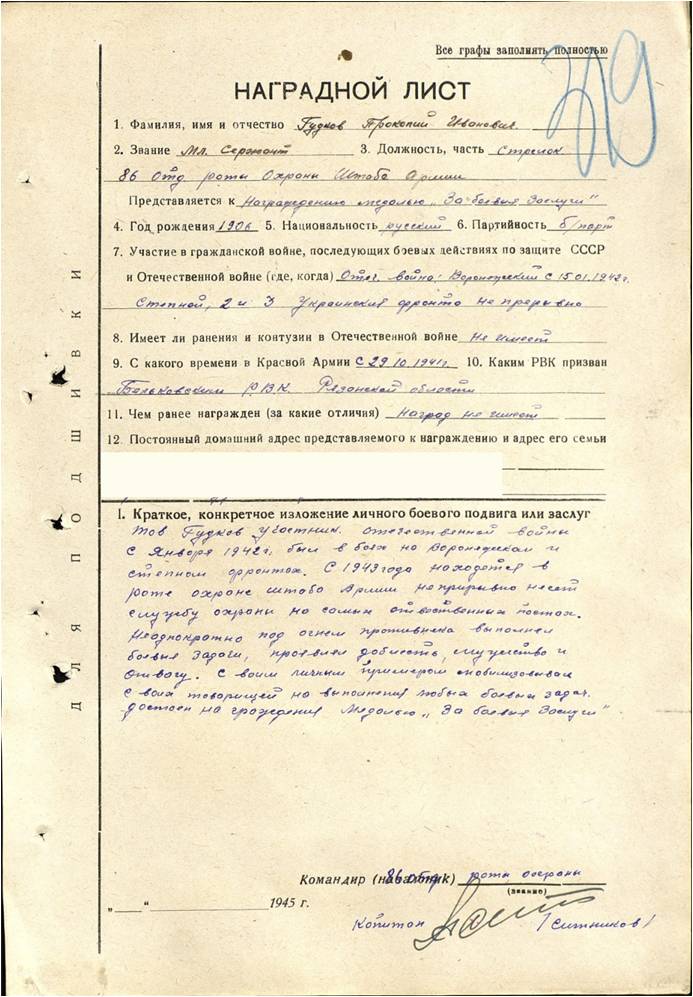 Все графы заполнять полностью
319
НАГРАДНОЙ ЛИСТ
1. Фамилия, имя и отчество Гудков Прокопий Иванович
2. Звание Мл. Сержант 3. Должность, часть Стрелок
86 Отд роты Охраны Штаба Армии
Представляется к Награждению медалью „За боевыя Заслуги"
4. Год рождения 1906 5. Национальность русский 6. Партийность б/парт
7. Участие в гражданской войне, последующих боевых действиях по защите СССР
и Отечественной войне (где, когда) Отеч. война: Воронежский с 15.01.1942г.
Степной, 2 и 3 Украинские фронта не прерывно
8. Имеет ли ранения и контузии в Отечественной войне Не имеет
9. С какого времени в Красной Армии с 29.10.1941г. 10. Каким РВК призван
Бельковским РВК Рязанской области
11. Чем ранее награжден (за какие отличия) Наград не имеет
12. Постоянный домашний адрес представляемого к награждению и адрес его семьи
I. Краткое, конкретное изложение личного боевого подвига или заслуг
тов Гудков участник отечественной войны
с Января 1942г. был в боях на Воронежском и
степном фронтах. С 1943 года находется в
роте охране штаба Армии неприрывно несет
службу охраны на самых ответственных постах.
Неоднократно под огнем противнека выполнял
боевыя задачи, проявлял доблесть, мужество и
отвагу. С воим личным примером мобилизовывал
с воих товарищей на выполнения любых боевых задач.
достоен на граждения Медалью „За боевыя Заслуги"
Командир (начальник) 86 отд роты охраны
(звание)
„___" 1945 г.
Капитан /Ситников/
ДЛЯ ПОДШИВКИ